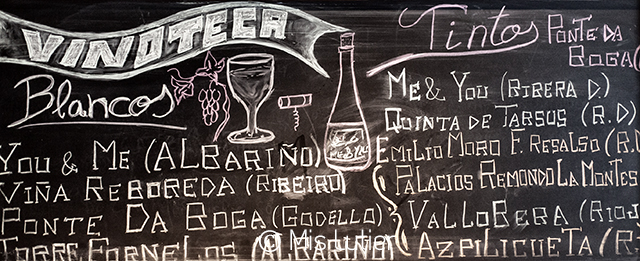 VINOTECA
Blancos
YOU & ME (ALBARIÑO)
VIÑA REBOREDA (RIBEIRO)
PONTE DA BOGA (GODELLO)
TORRE FORNELOS (ALBARIÑO)
Tintos
PONTE DA
BOGA (
ME & YOU (RIBERA D.)
QUINTA DE TARSUS (R.D)
EMILIO MORO F. RESALSO (R.
PALACIOS REMONDO LA MONTES
VALLOBERA (RIOJ
AZPILICUETA (R